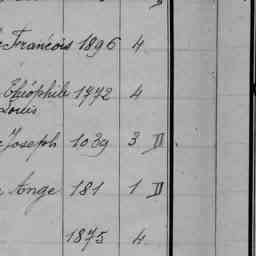 François 1896 4
Théophile 1772 4
Louis
Joseph 1039 3 D
Ange 181 1 D
1875 4